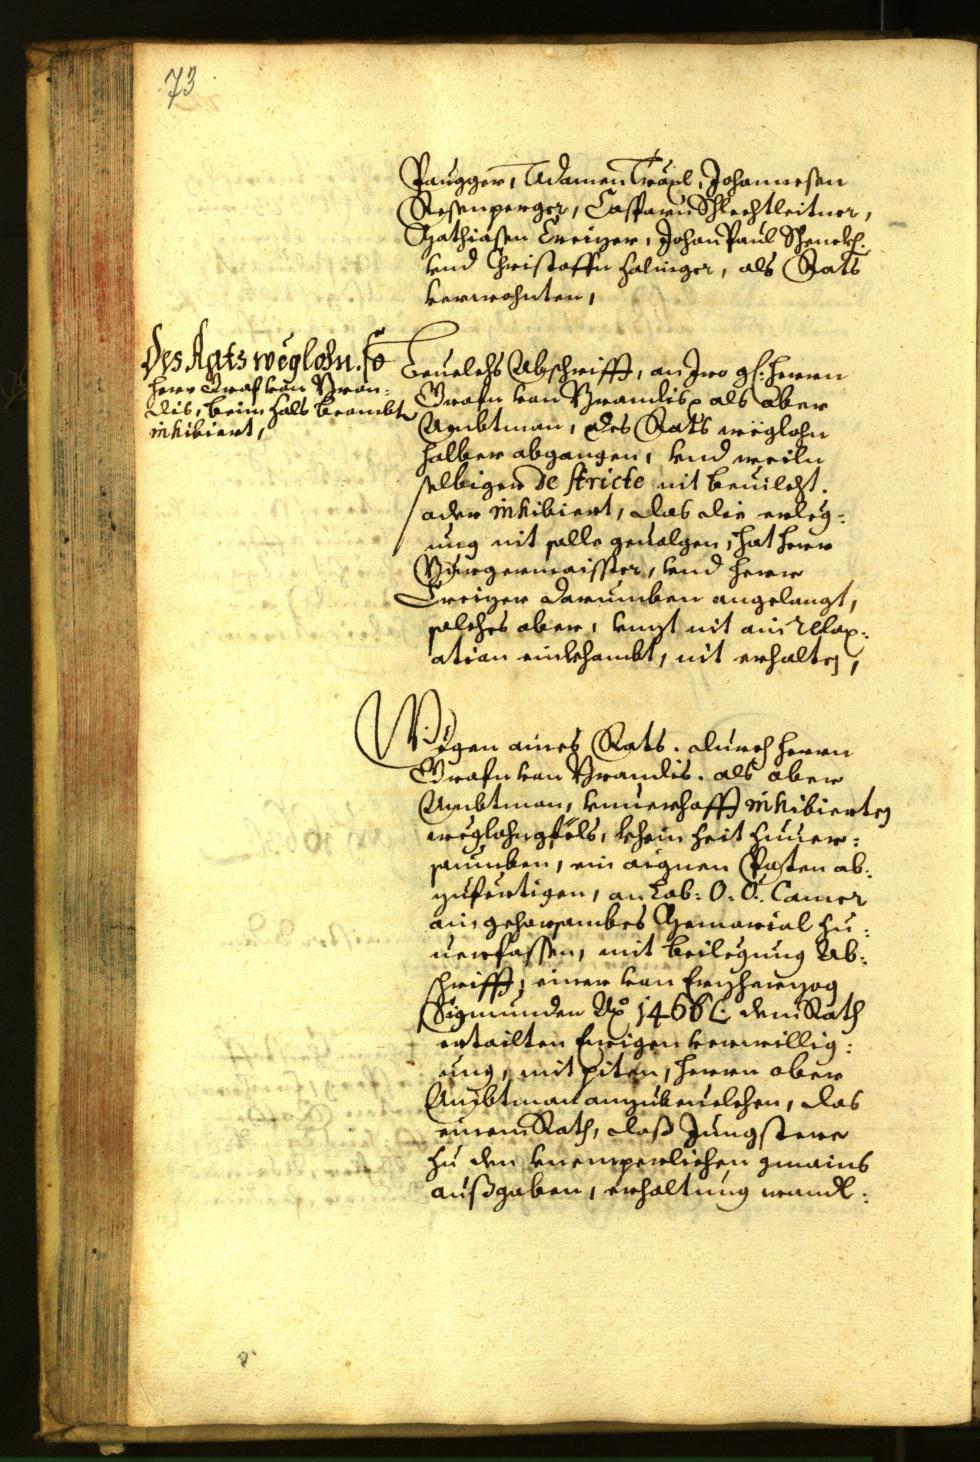 73
Paugger, Adamen Tröpl, Johannesen
Rosenperger, Casparn Schlechtleitner,
Mathiasen Creizer, Johan Paul Schenckh.
vnd Christoffn Halinger, als Rats
verwohnten,
Des Rats weglohn. so
herr Graf von Bran:
dis, beim Hals beambte
inhibiert,
Beuelchs Abschrifft, an Iro gl: herrn
Grafn von Brandis als Ober
Ambtman, des Rats weglohn
halber abgangen, vnd weiln
selbiger de stricte nit beuilcht.
oder inhibiert, das die erleg:
ung nit solle geuolgen, hat herr
Burgermaisster, vnd herr
Creizer darumben angelangt,
solches aber, vnzt nit ain relax:
ation einkhombt, nit erhalten,
Wegen aines Rats. durch herrn
Grafn von Brandis. als ober
Ambtman, vnuerhofft inhibierten
weglohngföls, khein Zeit zuuer:
saumben, ein aignen Poten ab:
zufertigen, an Lob: O: Ö: Camer
ain gehorsambes Memorial zu:
uerfassen, mit beilegung Ab:
schrifft, einer von Erzherzog
Sigmunden Ao 1466 dem Rath
ertailten Ewigen verwillig:
ung, mit piten, herrn ober
Ambtman anzubeuelchen, das
einem Rath, daß Jüngstere
zu den vnemperlichen gmains
außgaben, erhaltung